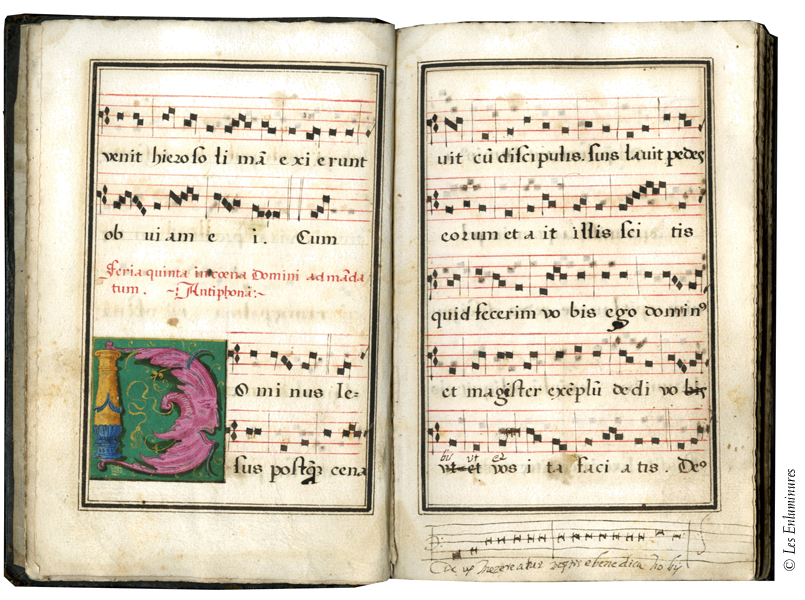 venit hieroso li mā e xi e runt
ob vi am e i. Cum
Feria quinta in cœna Domini ad māda
tum. Antiphona:
DO mi nus Ie=
sus postq̃ cena
vit cū discipulis. suis lavit pedes
eorum et a it illis sci tis
quid fecerim vo bis ego dominꝰ
et magister exēplū de di vo bis
bis ut et
ut et vos i ta faci a tis. Deꝰ
© Les Enluminures